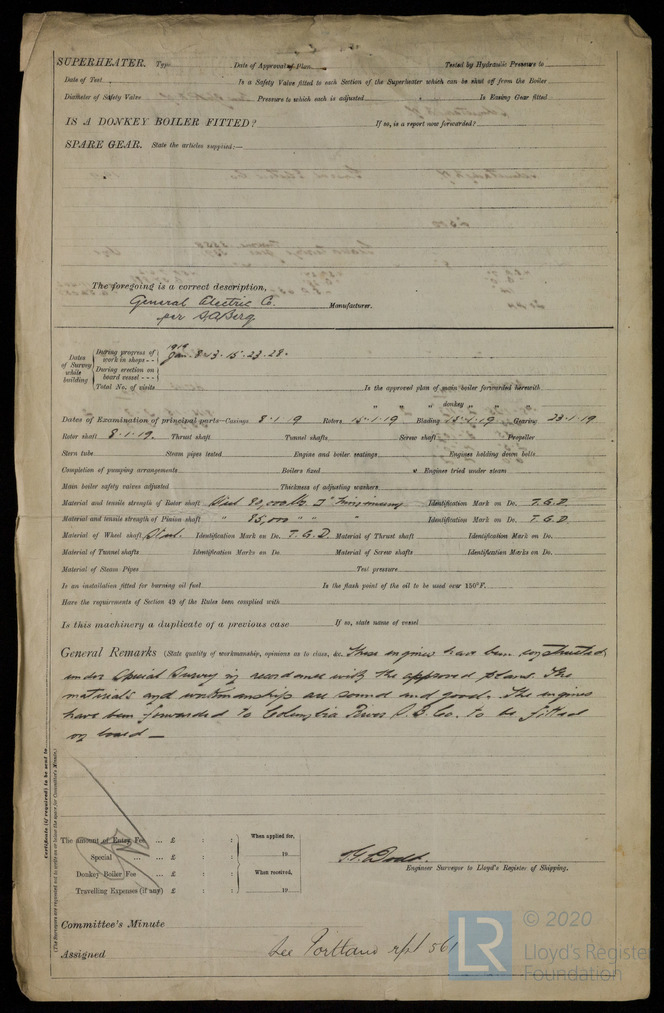 SUPERHEATER. Type Date of Approval of Plan Tested by Hydraulic Pressure to
Date of Test Is a Safety Valve fitted to each Section of the Superheater which can be shut off from the Boiler
Diameter of Safety Valve Pressure to which each is adjusted Is Easing Gear fitted
IS A DONKEY BOILER FITTED? If so, is a report now forwarded?
SPARE GEAR. State the articles supplied:—
The foregoing is a correct description,
General Electric Co. Manufacturer.
per
1919
Dates of Survey while building
During progress of work in shops - - Jan. 8. 13. 15. 23. 28.
During erection on board vessel - - -
Total No. of visits Is the approved plan of main boiler forwarded herewith
" " " donkey " " "
Dates of Examination of principal parts—Casings 8-1-19 Rotors 15-1-19 Blading 15-1-19 Gearing 23-1-19.
Rotor shaft 8-1-19. Thrust shaft Tunnel shafts Screw shaft Propeller
Stern tube Steam pipes tested Engine and boiler seatings Engines holding down bolts
Completion of pumping arrangements Boilers fixed Engines tried under steam
Main boiler safety valves adjusted Thickness of adjusting washers
Material and tensile strength of Rotor shaft Steel 80,000 lbs. Identification Mark on Do. T.G.D.
Material and tensile strength of Pinion shaft " 85,000 " " " Identification Mark on Do. T.G.D.
Material of Wheel shaft Steel. Identification Mark on Do. T.G.D. Material of Thrust shaft Identification Mark on Do.
Material of Tunnel shafts Identification Marks on Do. Material of Screw shafts Identification Marks on Do.
Material of Steam Pipes Test pressure
Is an installation fitted for burning oil fuel Is the flash point of the oil to be used over 150°F.
Have the requirements of Section 49 of the Rules been complied with
Is this machinery a duplicate of a previous case If so, state name of vessel
General Remarks (State quality of workmanship, opinions as to class, &c. These engines have been constructed
under Special Survey in accordance with the approved plans. The
materials and workmanship are sound and good. The engines
have been forwarded to Columbia River S.B. Co. to be fitted
on board —
Certificate (if required) to be sent to
(The Surveyors are requested not to write on or below the space for Committee's Minute.)
The amount of Entry Fee ... £ : : When applied for,
Special ... ... £ : : 19
Donkey Boiler Fee ... £ : : When received,
Travelling Expenses (if any) £ : : 19
Dodd.
Engineer Surveyor to Lloyd's Register of Shipping.
Committee's Minute
Assigned See Portland rpt 561
LR © 2020
Lloyd's Register
Foundation